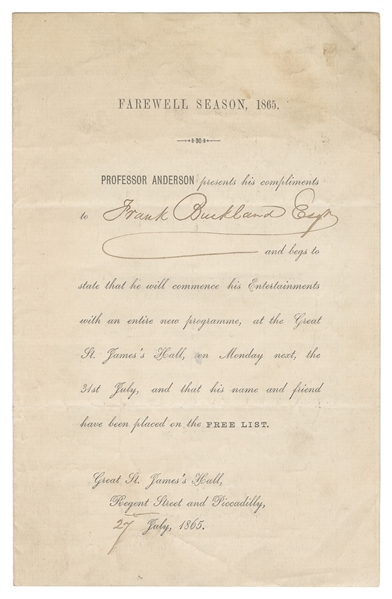 FAREWELL SEASON, 1865.
PROFESSOR ANDERSON presents his compliments
to Frank Buckland Esqr
and begs to
state that he will commence his Entertainments
with an entire new programme, at the Great
St. James's Hall, on Monday next, the
31st July, and that his name and friend
have been placed on the FREE LIST.
Great St. James's Hall,
Regent Street and Piccadilly,
27 July, 1865.